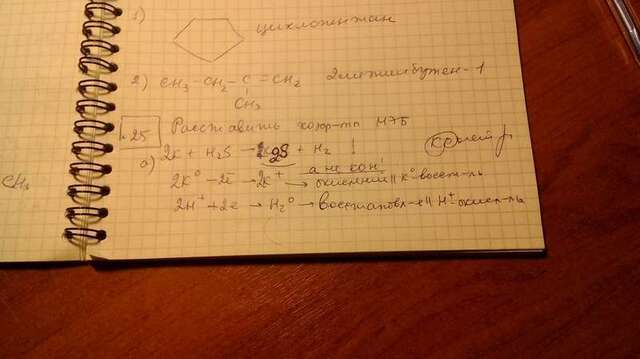 1) циклопентан
2) CH₃ - CH₂ - C = CH₂ 2метилбутен-1
CH₃
№25 Расставить коэф-ты МЭБ
а) 2K + H₂S → K₂S + H₂ ↑
а не кон!
2K⁰ - 2ē → 2K⁺ → окисление || K⁰-восст-ль
2H⁺ + 2ē → H₂⁰ → восстановл-е || H⁺-окисл-ль
CH₃